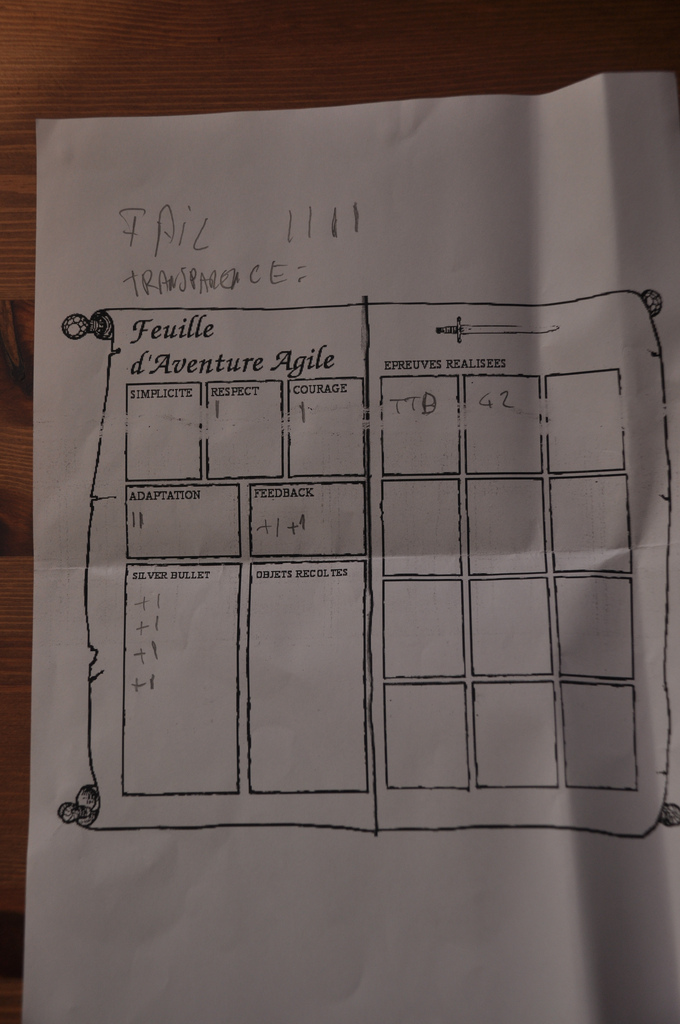 FAIL IIII
TRANSPARENCE =
Feuille
d'Aventure Agile
SIMPLICITE
RESPECT
I
COURAGE
I
ADAPTATION
II
FEEDBACK
+1 +1
SILVER BULLET
+1
+1
+1
+1
OBJETS RECOLTES
EPREUVES REALISEES
TTD
42